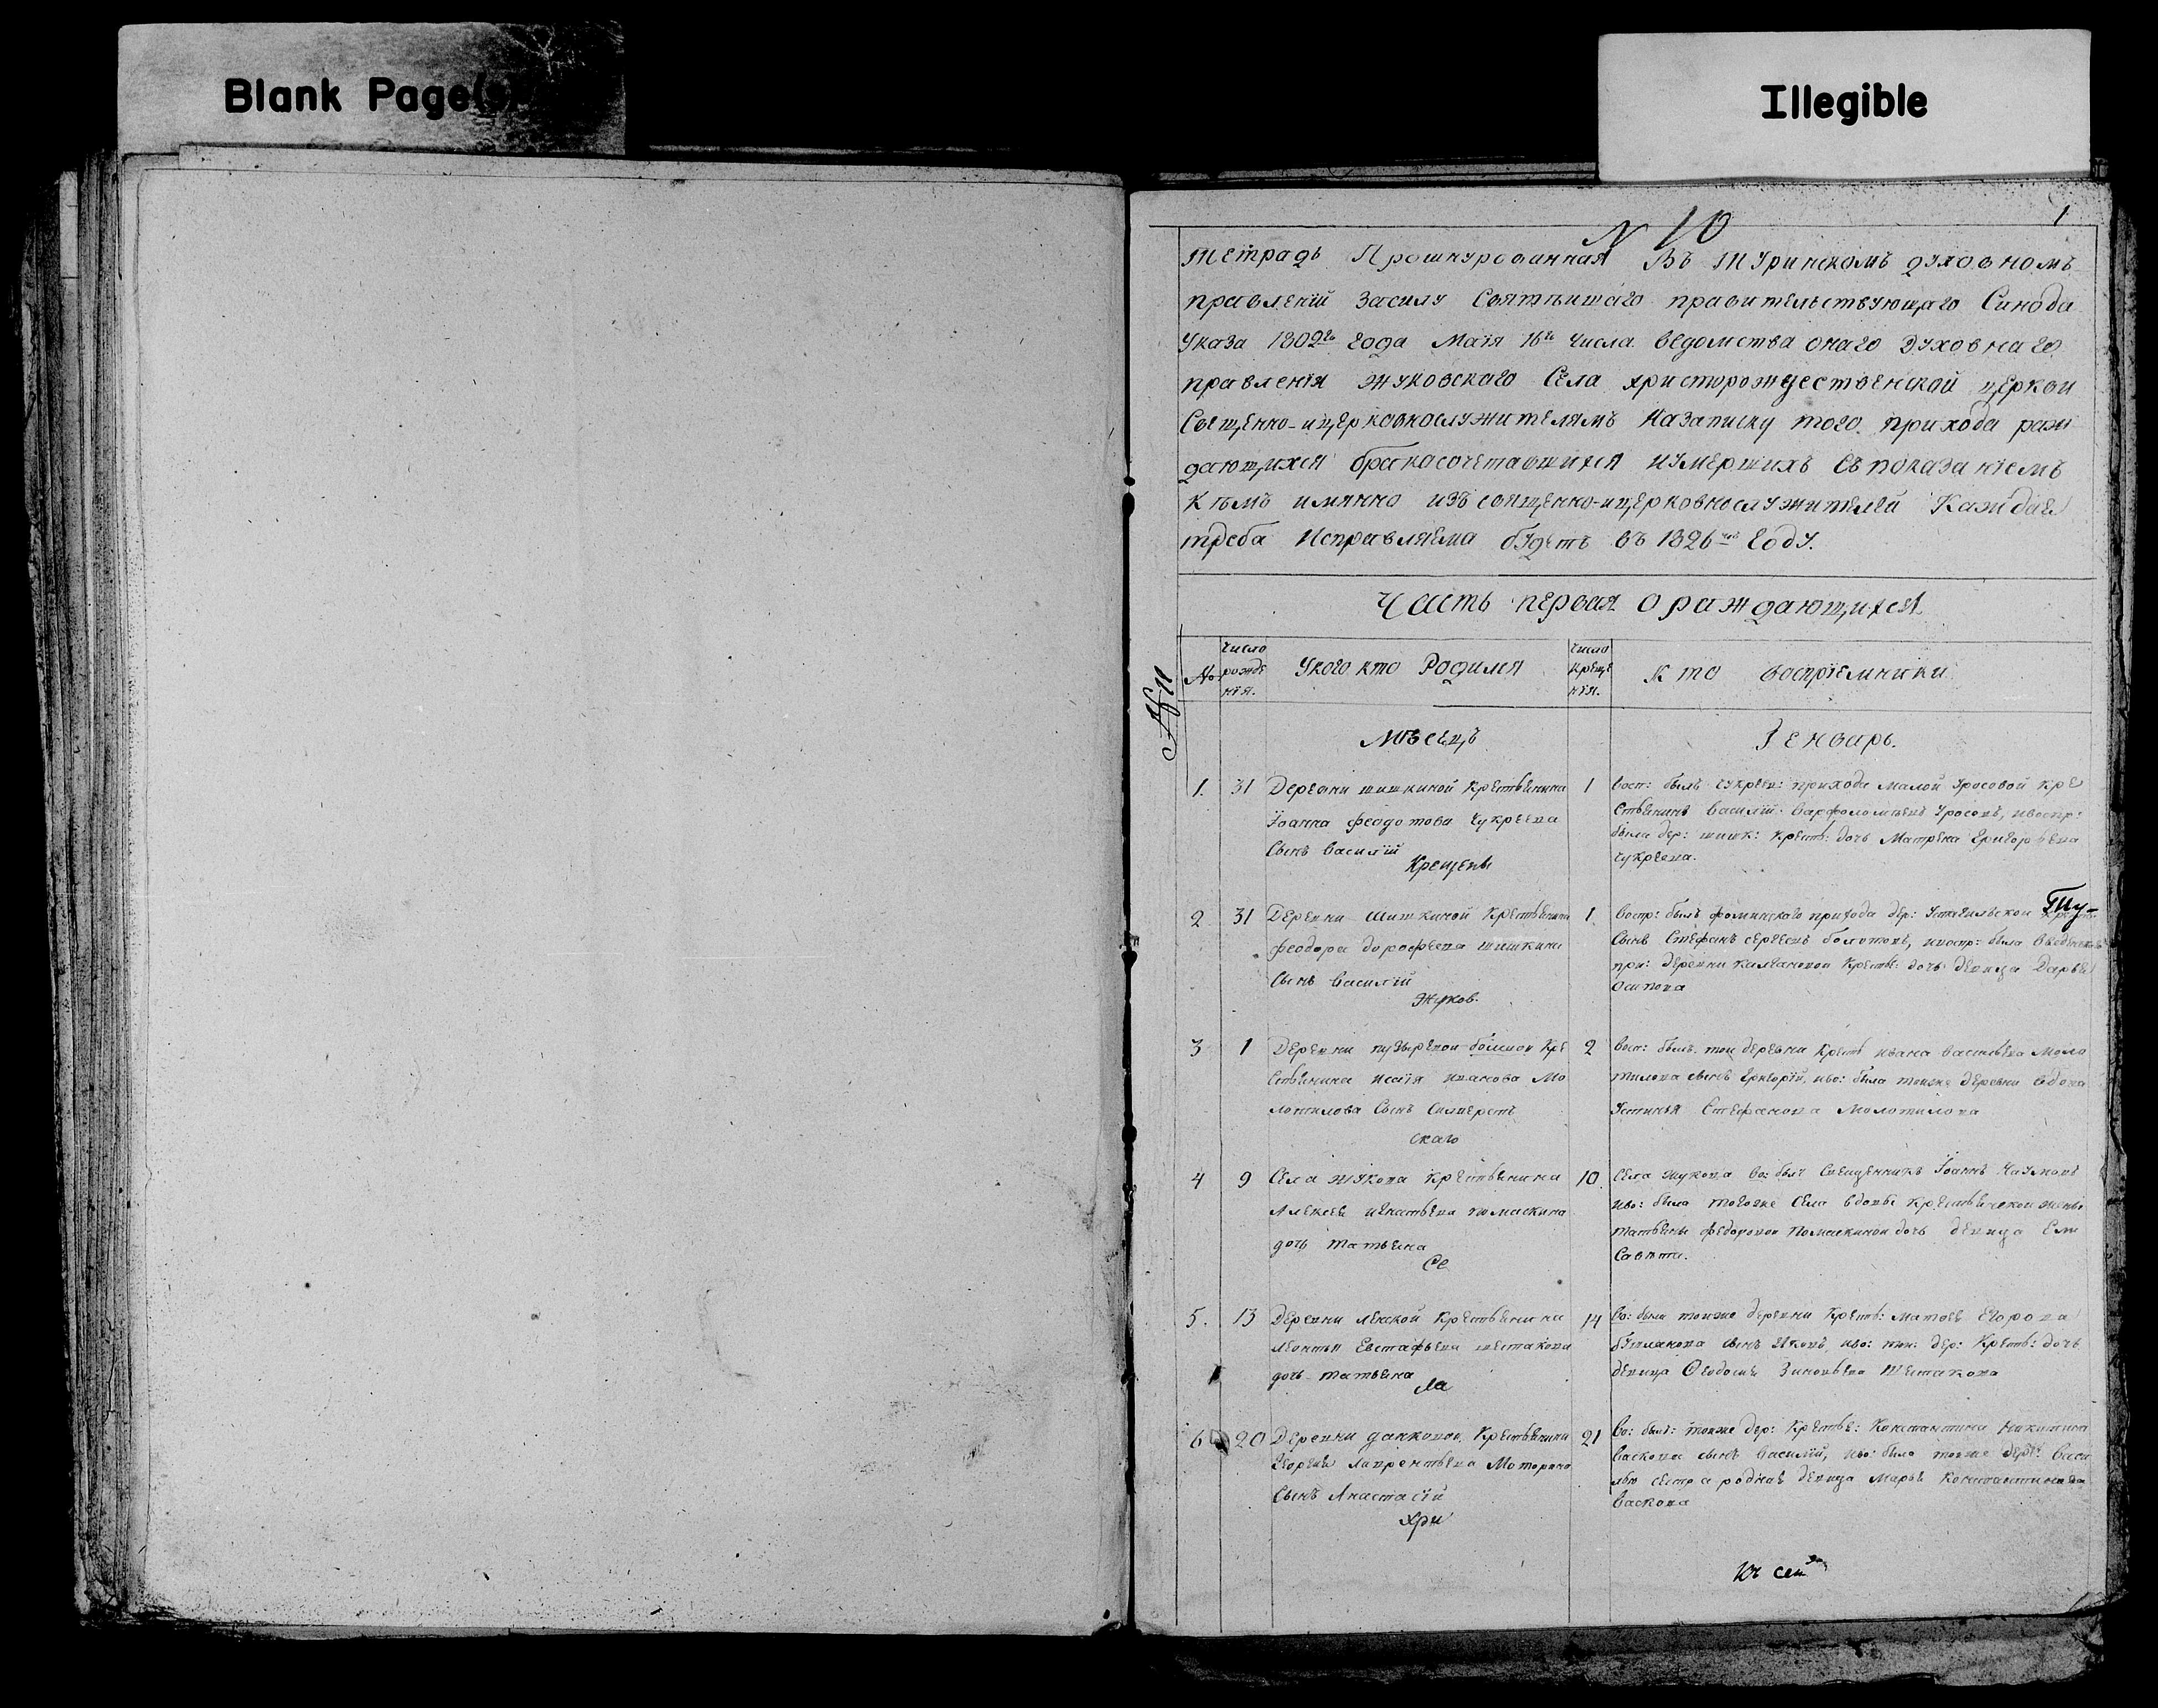 Blank Page(s)
Illegible
N 10
1
Тетрадь Прошнурованная Въ Туринскомъ духовномъ
правленiй Засилу Святѣишаго правительствующаго Синода
Указа 1802го года Маiя 16го числа ведомства онаго Духовнаго
правленiя жуковскаго Села христорождественской церкви
Свещенно-ицерковнослужителямъ Назаписку того прихода раж
дающихся бракосочетавшихся иумершихъ съ показанiемъ
Кѣмъ имянно изъ священно-ицерковнослужителей Каждае
треба Исправляема будетъ въ 1826мъ Году.
Часть первая о раждающихся
№
число рожде нiя.
Укого кто Родился
число Креще нiя.
Кто воспрiемники
Мѣсецъ
Генварь.
1. 31 Деревни шишкиной Крестьянина
Iоанна феодотова Чукреева
Сынъ Василiй
Крещены
1 Восп: былъ Чукреев: прихода Малой Уросовой Кре
стьянинъ Василiй Варфоломѣевъ Уросовъ, ивоспр:
была дер: шишк: Крест: дочь Матрена Григорьева
Чукреева.
2 31 Деревни Шишкиной Крестьянина
феодора дорофеева шишкина
Сынъ Василiй
Жуков.
1 Воспр: былъ фоминскаго прихода дер: Устьницской
Ту-
Сынъ Стефанъ сергеевъ болотовъ, ивоспр: была
при: деревни Кресть: дочь девица Дарья
Осипова
3 1 Деревни пузыревой-болшой Кре
стьянина исаiя иванова Мо
лотилова Сынъ Силверстъ
скаго
2 Восп: былъ той деревни Крест: ивана васильева Моло
тилова сынъ Григорiй, иво: была тойже деревни вдова
Устинья Стефанова Молотилова
4 9 Села жукова Крестьянина
Алексея игнатьева помаскина
дочь татьяна
Се
10. Села жукова во: былъ Священникъ Iоаннъ Наумовъ
иво: была тогоже Села вдовы Крестьянской жены
татьяны федоровой Помаскиной дочь девица Ели
савета.
5. 13 Деревни ленской Крестьянина
леонтья Евстафьева шестакова
дочь татьяна
Ла
14 Во: былъ тойже деревни Крест: матвея Егорова
бушлакова сынъ Яковъ, иво: той: дер: Крест: дочь
девица Феодосья Зиновьева Шестакова
6 20 Деревни данковой, Крестьянина
Георгия Лаврентьева Моторина
Сынъ Анастасiй
хри
21 Во: былъ: тойже дер: Крестье: Константина Никитина
васкова сынъ василiй, иво: была тойже дер: васи
лью сестра родная девица Марья Константинова
васкова